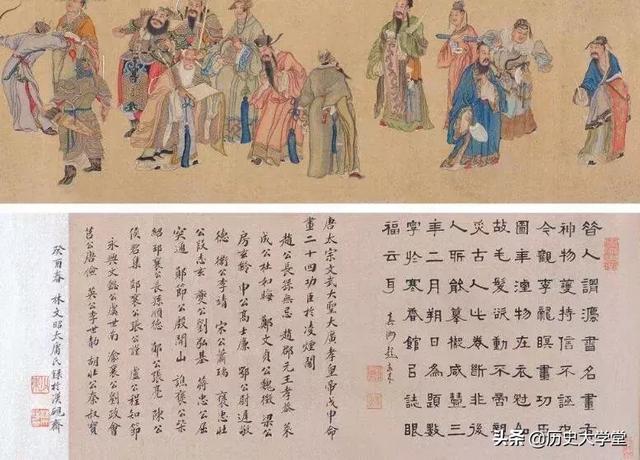 昔人謂灋書名畫有
神物護持信不誣也
今觀李龍瞑畫功臣
圖年湮物在衣冠如
故毛髮動不啻觀
古人此卷斷非後
人所能摹擬咸豐三
年二月朔日為題數
字於寒香館呂誌眼
福云耳
真州
唐太宗文武大聖大廣孝皇帝戊申命
畫二十四功臣於凌煙閣
趙公長孫無忌 趙郡元王孝恭 萊
成公杜如晦 鄭文貞公魏徵 梁公
房玄齡 申公高士廉 鄂公尉遲敬
德 衛公李靖 宋公蕭瑀 褒忠壯
公段志玄 夔公劉弘基 蔣忠公屈
突通 鄖節公殷開山 譙襄公柴
紹 邳襄公長孫順德 鄖公張亮 陳公
侯君集 郯襄公張公謹 盧公程知節
永興文懿公虞世南 渝襄公劉政會
莒公唐儉 英公李世勣 胡壯公秦叔寶
癸酉春 林文昭大膺氏錄於漢硯齋
头条 @历史大学堂